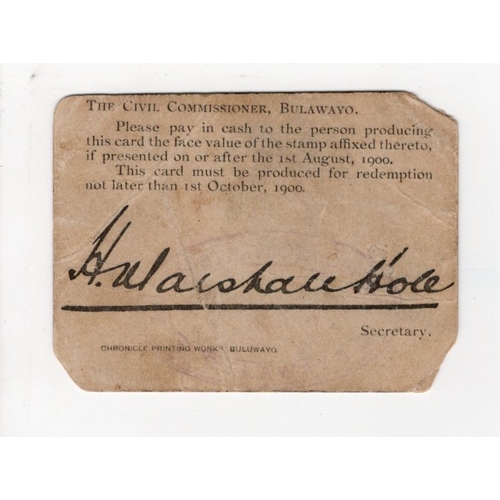 THE CIVIL COMMISSIONER, BULAWAYO.
Please pay in cash to the person producing
this card the face value of the stamp affixed thereto,
if presented on or after the 1st August, 1900.
This card must be produced for redemption
not later than 1st October, 1900.
H. Marshall Hole
Secretary.
CHRONICLE PRINTING WORKS BULUWAYO.